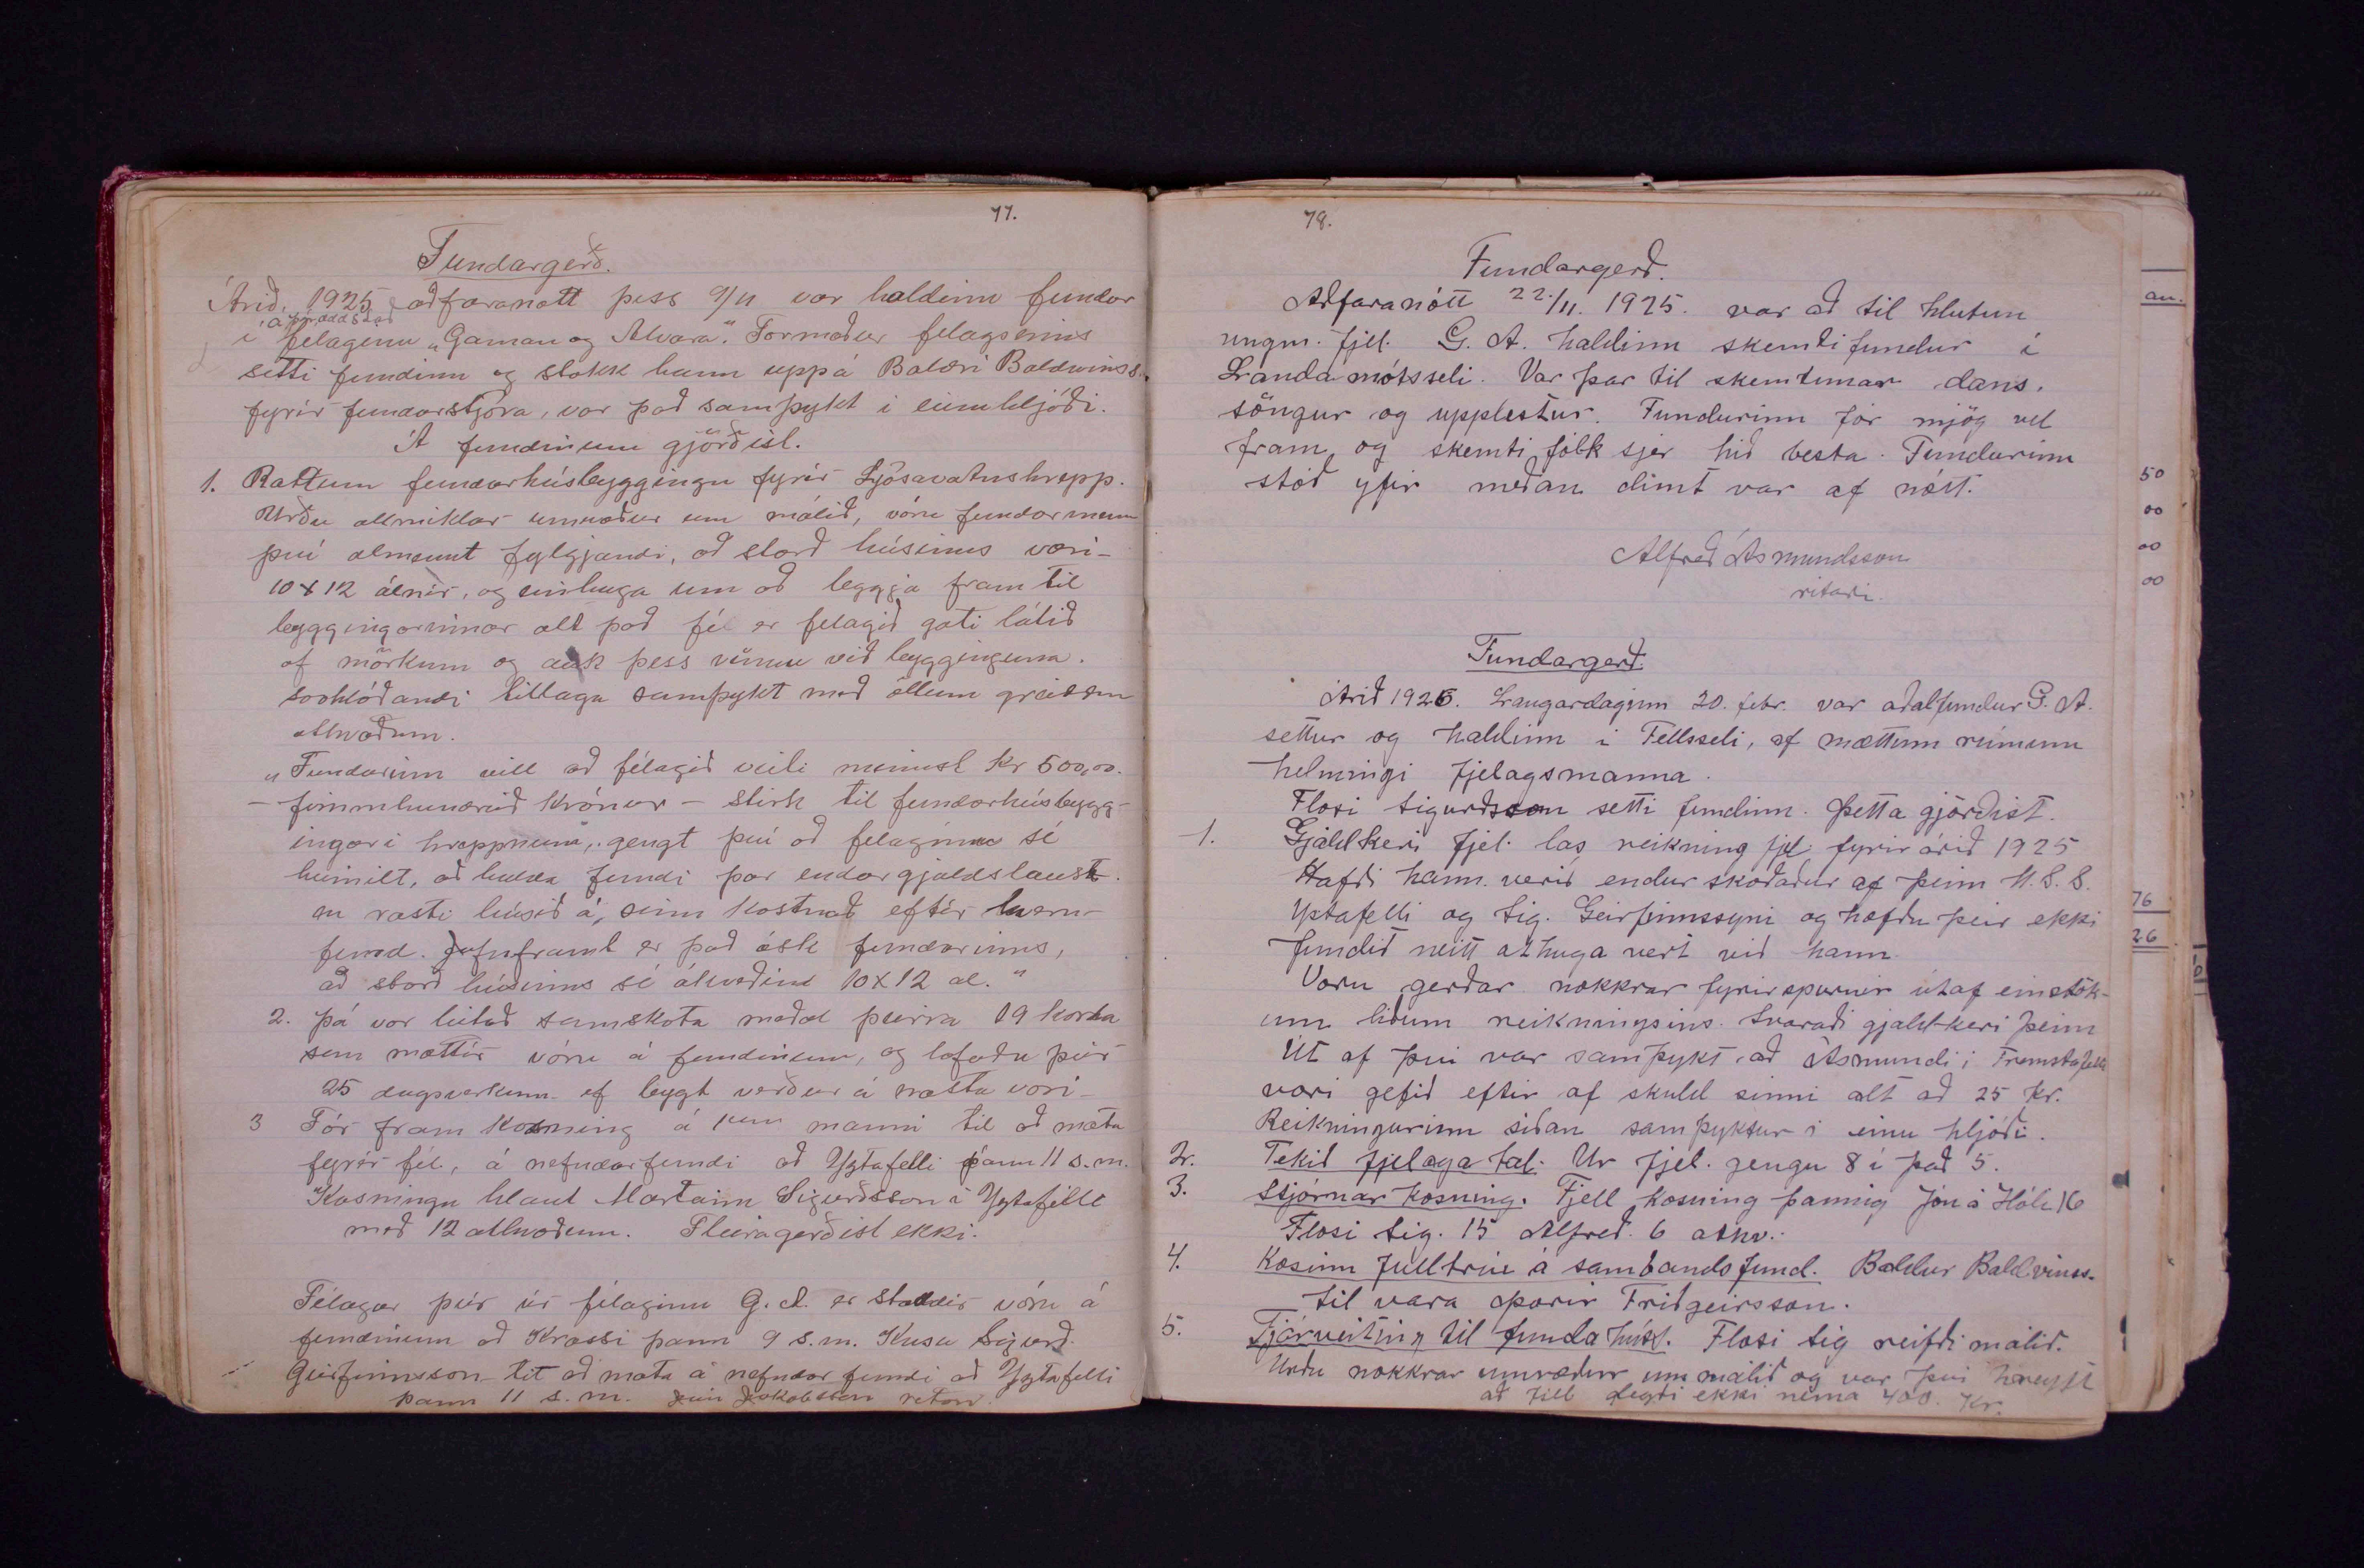 77.
Fundargerð.
Árið 1925 aðfaranótt þess 9/11 var haldinn fundur
í félaginu „Gaman og Alvara". Formaður félagsins
setti fundinn og stakk hann uppá Baldri Baldvinss.
fyrir fundarstjóra, var það samþykt í einuhljóði.
Á fundinum gjörðist.
1. Rætt um fundarhúsbyggingu fyrir Ljósavatnshrepp.
Urðu allmiklar umræður um málið, vóru fundarmenn
því alment fylgjandi, að stærð húsins væri
10 x 12 álnir, og einhuga um að leggja fram til
byggingarinnar alt það fé er félagið gæti látið
af mörkum og auk þess vinnu við bygginguna.
svohlóðandi tillaga samþykt með öllum greiddum
atkvæðum.
„Fundurinn vill að félagið veiti minnst Kr 500,00.
– fimmhundruð krónur – stirk til fundarhúsbygg-
ingar í hreppnum, gengt því að félaginu sé
heimilt, að halda fundi þar endurgjaldslaust.
en ræsti húsið á sinn kostnað eftir hvern
fund. Jafnframt er það ósk fundarinns,
að stærð húsinns sé ákveðinn 10 x 12 al."
2. þá var leitað samskota meðal þeirra 19 karla
sem mættir vóru á fundinum, og lofuðu þeir
25 dagsverkum ef bygt verður á næsta vori
3 Fór fram kosning á manni til að mæta
fyrir fél, á nefndarfundi að Ystafelli þann 11 s.m.
Kosningu hlaut Marteinn Sigurðsson á Ystafelli
með 12 atkvæðum. Fleira gerðist ekki.
Félagar þeir úr félaginu G.A. er staddir vóru á
fundinum að Krossi þann 9 s.m. Kusu Sigurð
Geirfinnsson til að mæta á nefndar fundi að Ystafelli
þann 11 s.m. Jón Jakobsson ritari
78.
Fundargerð.
Aðfaranótt 22./11. 1925. var að til hlutun
ungm. fjel. G. A. haldinn skemtifundur í
Landamótsseli. Var þar til skemtunar dans,
söngur og upplestur. Fundurinn fór mjög vel
fram og skemti fólk sjer hið besta. Fundurinn
stóð yfir meðan dimt var af nótt.
Alfreð Ásmundsson
ritari.
Fundargerð.
Árið 1926. Laugardaginn 20. febr. var aðalfundur G. A.
settur og haldinn í Fellsseli, af mættum rúmum
helmingi fjelagsmanna.
Flosi Sigurðsson setti fundinn. Þetta gjörðist.
1. Gjaldkeri fjel. las reikning fjel. fyrir árið 1925
Hafði hann verið endurskoðaður af þeim M. S. S.
Ystafelli og Sig. Geirfinnssyni og höfðu þeir ekki
fundið neitt athuga vert við hann.
Voru gerðar nokkrar fyrirspurnir útaf einstök-
um liðum reikningsins. Svaraði gjaldkeri þeim
Út af því var samþykt að Ásmundi í Fremstafelli
væri gefið eftir af skuld sinni alt að 25 kr.
Reikningurinn síðan samþyktur í einu hljóði.
2. Tekið fjelaga tal. Úr fjel. gengu 8 í það 5.
3. Stjórnar kosning. Fjell kosning þannig Jón á Hóli 16
Flosi Sig. 15 Alfreð. 6 atkv.
4. Kosinn fulltrúi á sambandsfund. Baldur Baldvinss.
til vara Þórir Friðgeirsson.
5. Fjárveiting til funda húss. Flosi Sig reifði málið.
Urðu nokkrar umræður um málið og var því hreyft
að fjell legði ekki nema 400. Kr.
au.
50
00
00
00
76
26